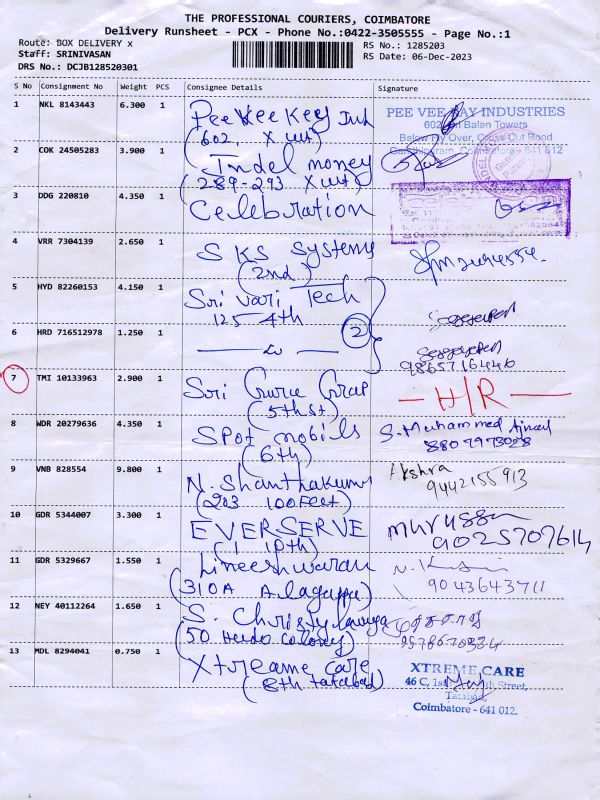 THE PROFESSIONAL COURIERS, COIMBATORE
Delivery Runsheet - PCX - Phone No.:0422-3505555 - Page No.:1
Route: BOX DELIVERY x
Staff: SRINIVASAN
DRS No.: DCJB128520301
RS No.: 1285203
RS Date: 06-Dec-2023
S No Consignment No Weight PCS Consignee Details Signature
1 NKL 8143443 6.300 1 PeeVeeKey Ind
(602, X cut)
PEE VEE KAY INDUSTRIES
602, Balan Towers
Below Fly Over, Cross Cut Road
Gandhipuram, Coimbatore 641 012
2 COK 24505283 3.900 1 Indel money
(289-293 X cut)
3 DDG 220810 4.350 1 Celebration
4 VRR 7304139 2.650 1 SKS Systems
(2nd)
5 HYD 82260153 4.150 1 Sri vari Tech
125 4th
2
6 HRD 716512978 1.250 1
9865716446
7 TMI 10133963 2.900 1 Sri Guru
(5th st)
H/R
8 WDR 20279636 4.350 1 Spot mobils
(6th)
S. Muhammed
8807973028
9 VNB 828554 9.800 1 N. Shanthakumar
(203 100 Feet)
Akshra
9442155913
10 GDR 5344007 3.300 1 EVERSERVE
(1 10th)
Murugan
9025707614
11 GDR 5329667 1.550 1 Lineeshwaran
(310A Alagappa)
9043643711
12 NEY 40112264 1.650 1 S. Christy
(50 Hudo colony)
9578670384
13 MDL 8294041 0.750 1 Xtreame Care
(8th tatabad)
XTREME CARE
46 C, 1st Street,
Tatabad,
Coimbatore - 641 012.